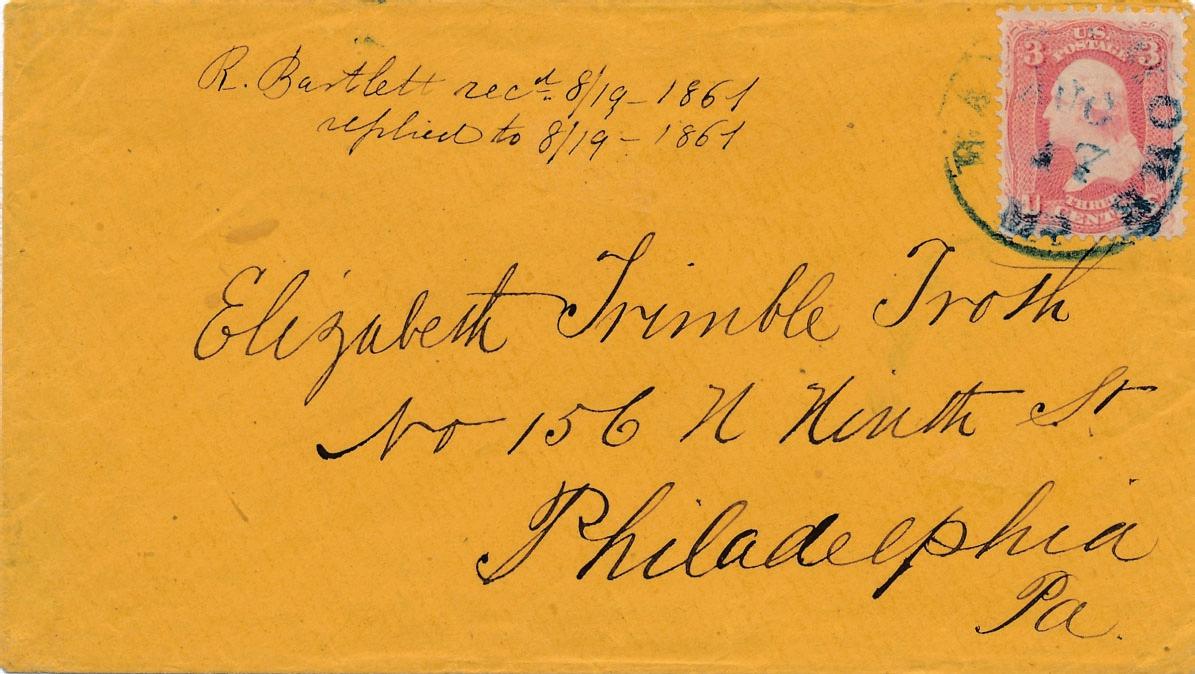 R. Bartlett recd. 8/19 - 1861
replied to 8/19 - 1861
3 U.S. POSTAGE 3
THREE CENTS
AUG
17
Elizabeth Trimble Troth
No 156 N Ninth St
Philadelphia
Pa.